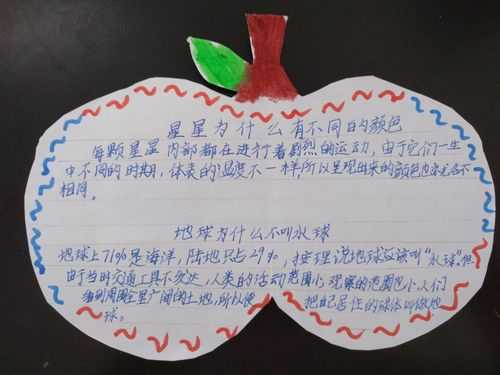 星星为什么有不同的颜色
每颗星星内部都在进行着剧烈的运动，由于它们一生
中不同的时期，体表的温度不一样所以呈现出来的颜色也亦不
相同。
地球为什么不叫水球
地球上71%是海洋，陆地只占29%，按理说地球应该叫“水球”。但
由于当时交通工具不发达，人类的活动范围小，观察的范围也小。人们
看到周围全是广阔的土地，所以便把自己居住的球体叫做地
球。